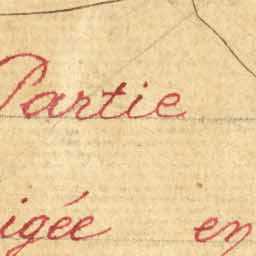 Partie
igée en